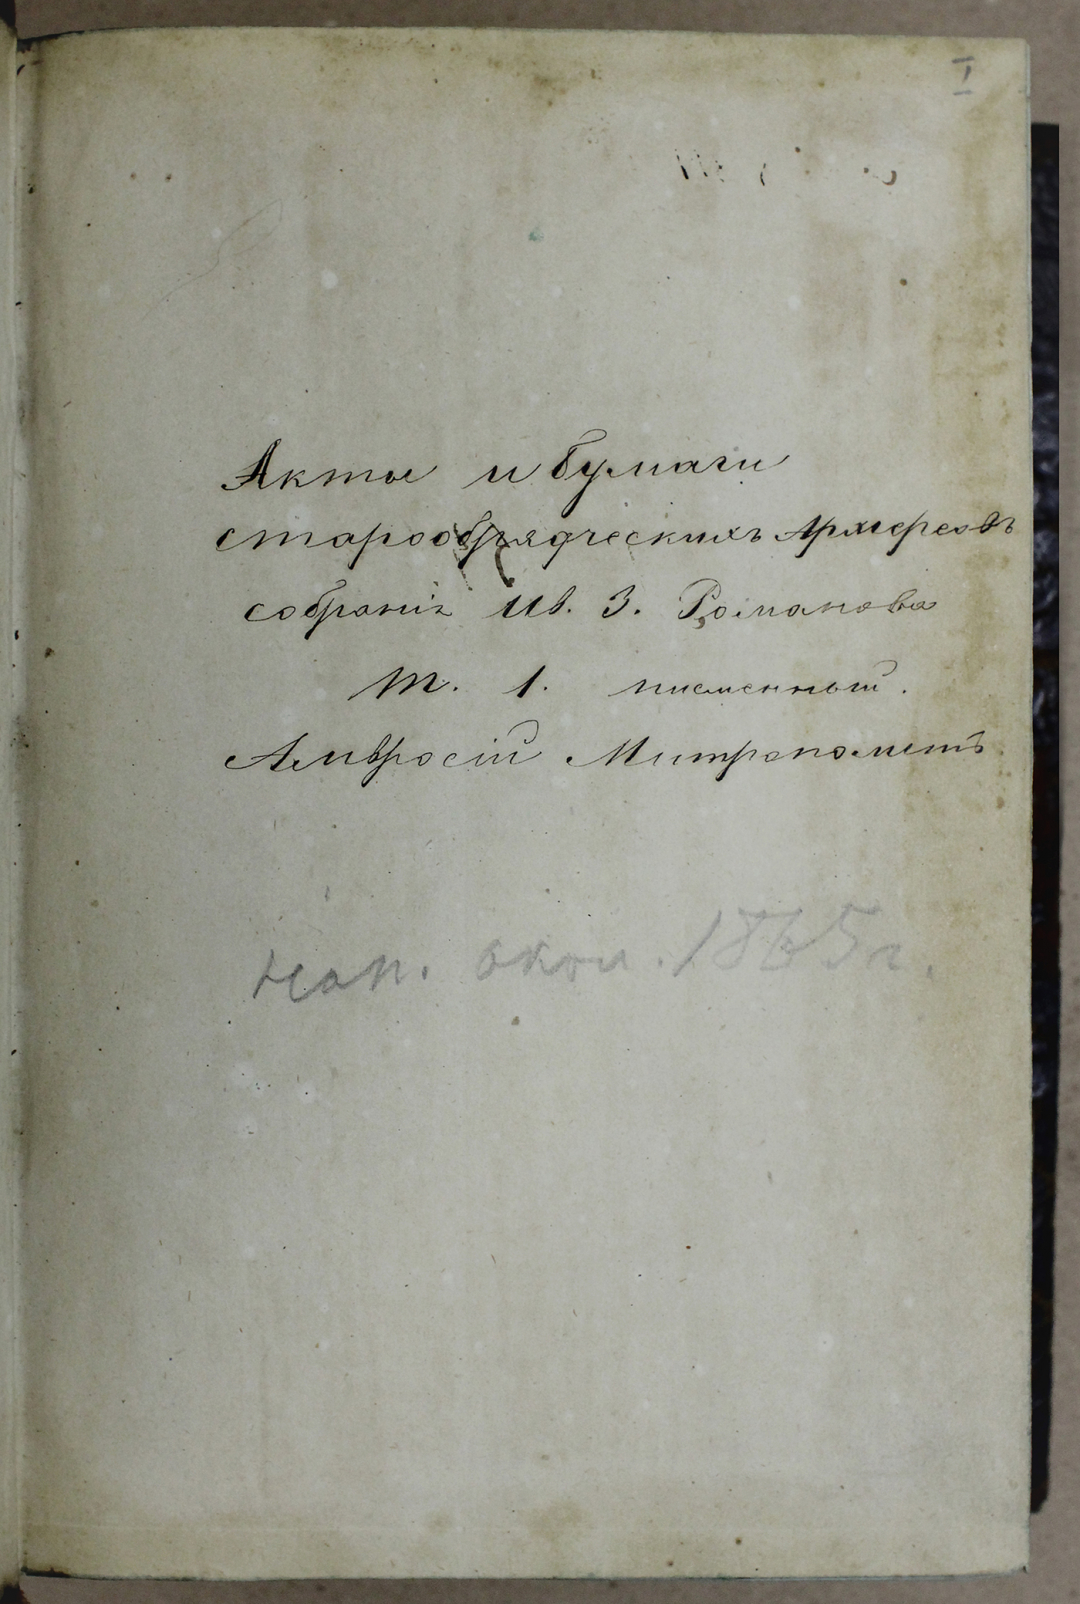 I
Акты и бумаги
старообрядческихъ Архіереовъ
собранія Ив. З. Романова
т. 1. писменный.
Амвросій Митрополитъ
нап. окол. 1865 г.